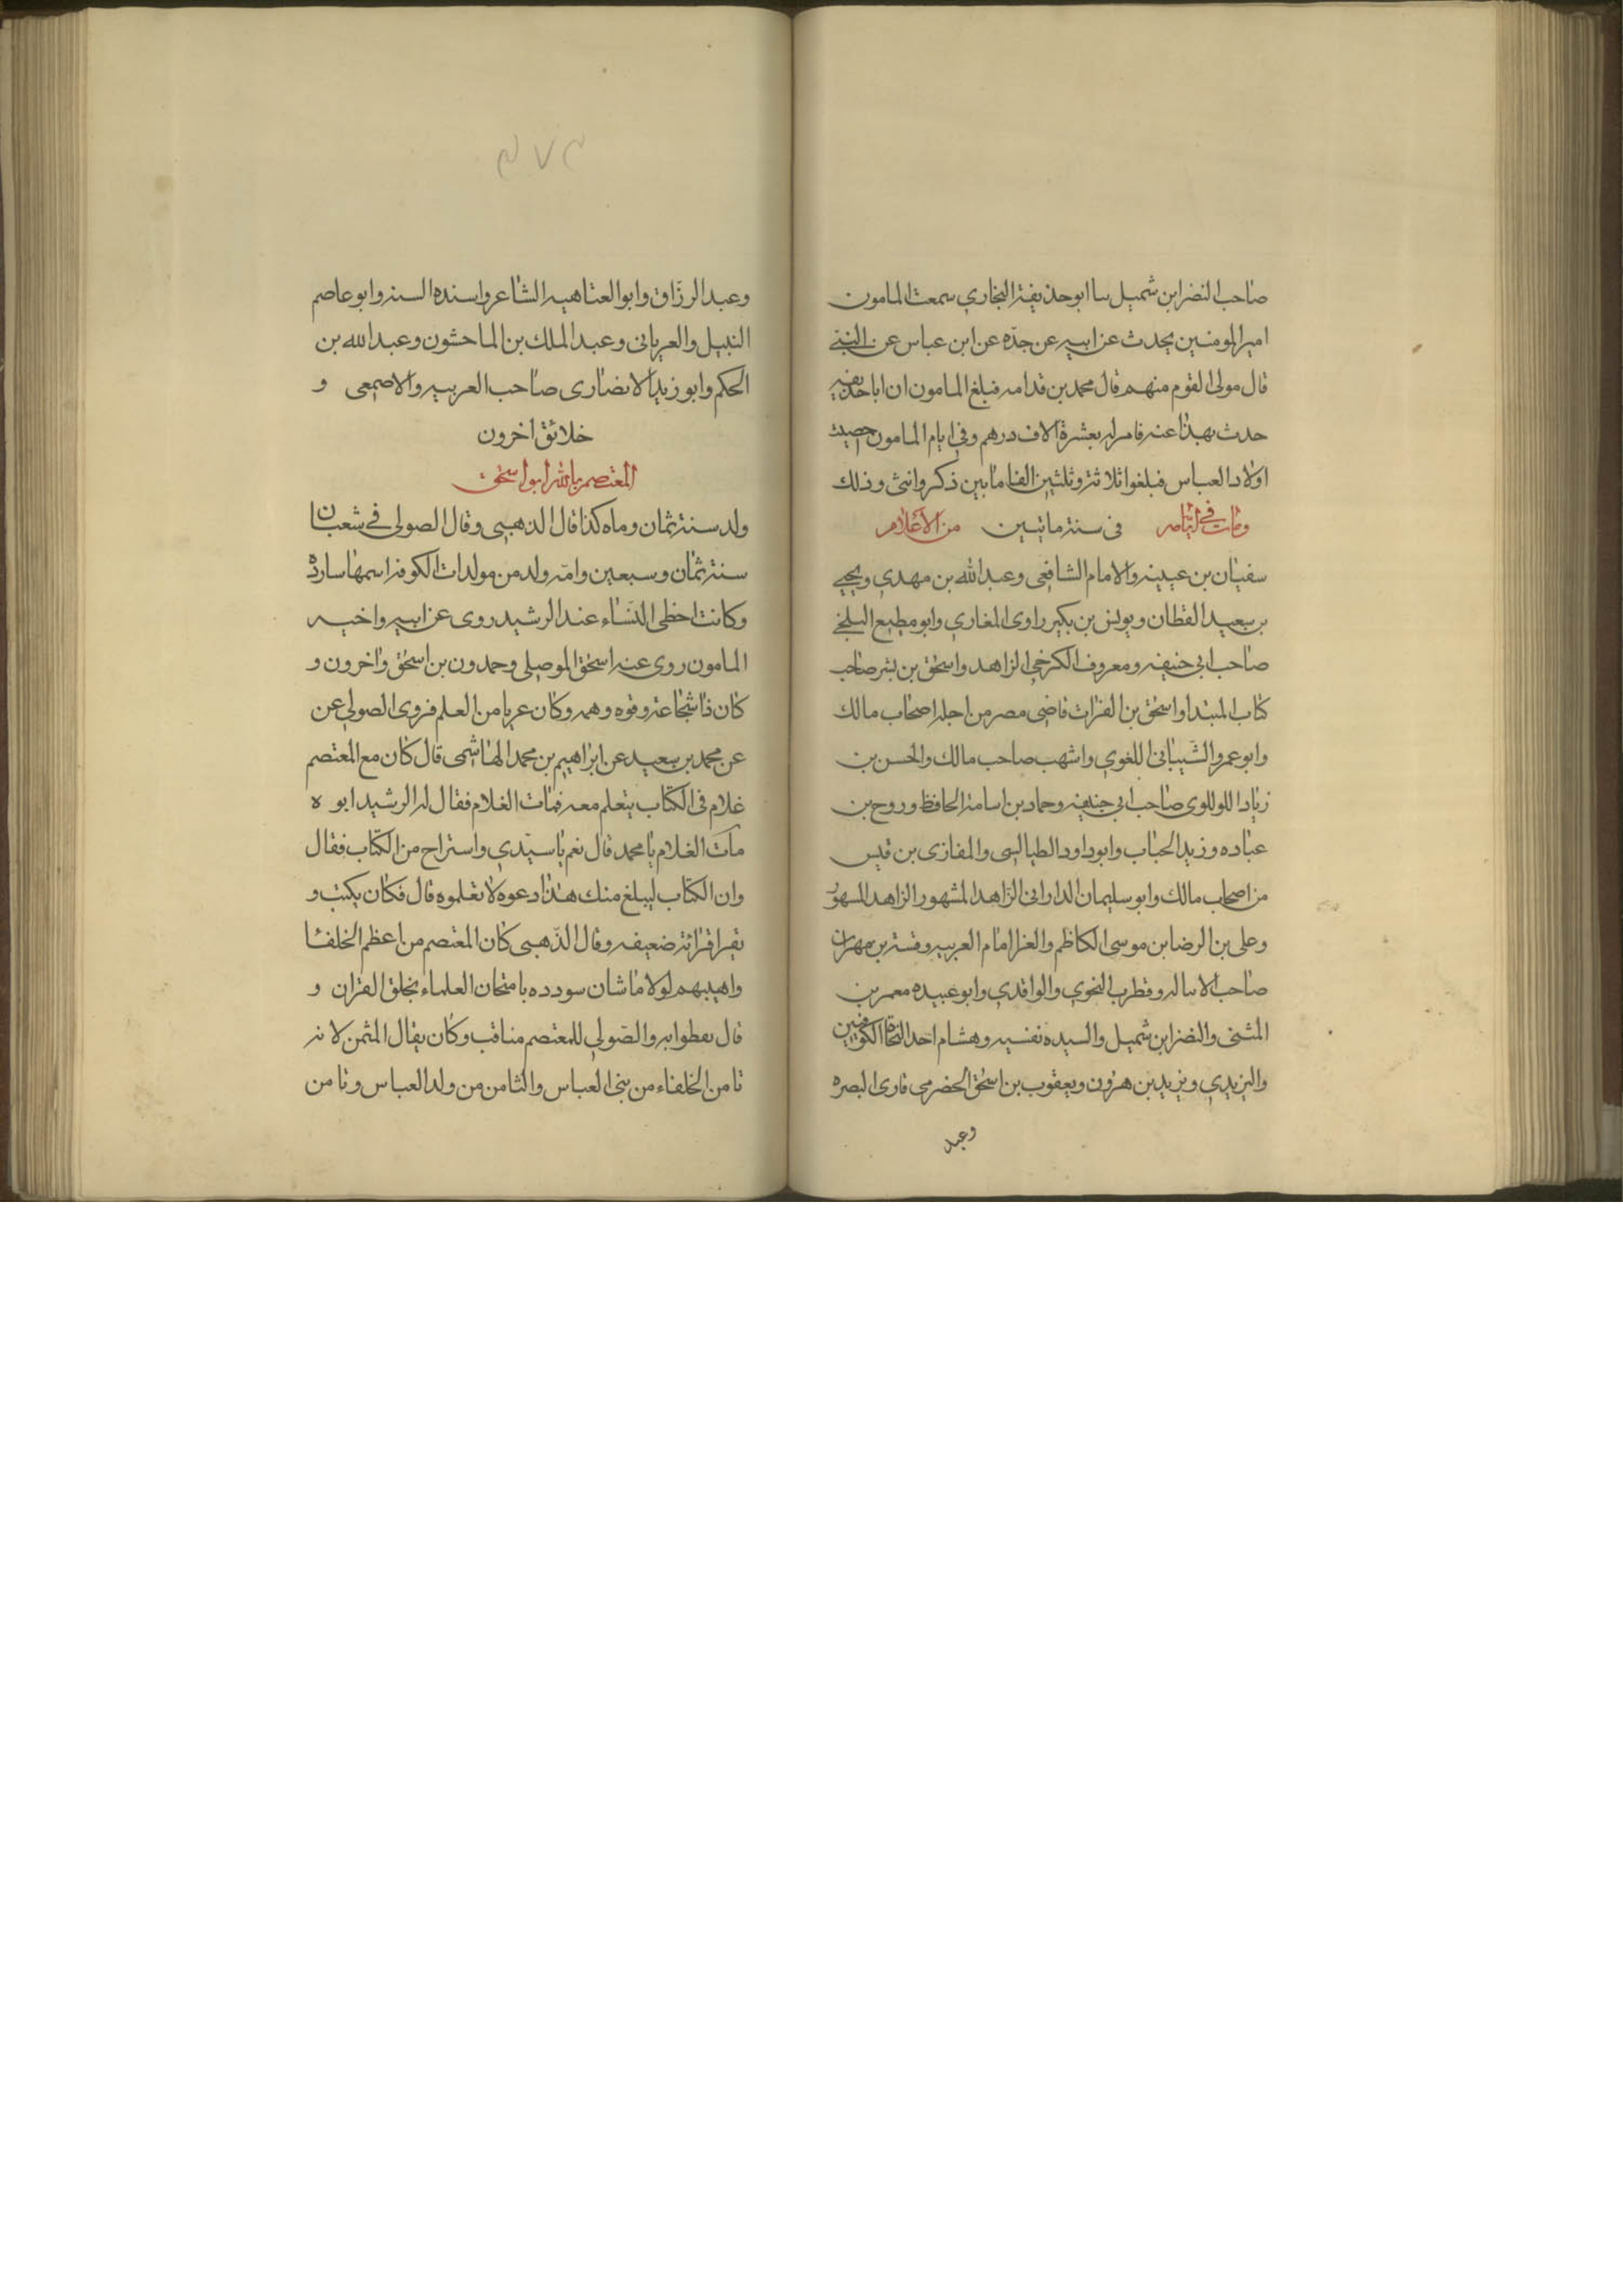 صاحب النضر ابن شميل سا ابو حذيفة البخاري سمعت المامون
امير المومنين يحدث عن ابيه عن جدّه عن ابن عباس عن النبي
قال مولى القوم منهم قال محمد بن قدامه فبلغ المامون ان اباحذيفه
حدث بهذا عنه فامر له بعشرة الاف درهم وفي ايام المامون احصيت
اولاد العباس فبلغوا ثلاثة وثلثين الفا مابين ذكر وانثى وذلك
في سنة مائتين ومات في ايامه من الاعلام
سفيان بن عيينه والامام الشافعي وعبدالله بن مهدي ويحيى
بن سعيد القطان ويونس بن بكير راوى المغازي وابو مطيع البلخي
صاحب ابي حنيفه ومعروف الكرخي الزاهد واسحق بن بشر صاحب
كتاب المبتدا واسحق بن الفرات قاضي مصر من اجله اصحاب مالك
وابو عمرو الشيباني اللغوي واشهب صاحب مالك والحسن بن
زياد اللولوى صاحب ابي حنيفه وحماد بن اسامة الحافظ وروح بن
عباده وزيد الحباب وابو داود الطيالسي والمفازى بن قيس
من اصحاب مالك وابو سليمان الداراني الزاهد المشهور الزاهد المشهور
وعلى بن الرضا بن موسى الكاظم والفرا امام العربيه وقتيبه بن مهران
صاحب الاماله وقطرب النحوي والواقدي وابو عبيده معمر بن
المثنى والنضر ابن شميل والسيده نفسيه وهشام احد النحاة الكوفيين
واليزيدي ويزيد بن هرون ويعقوب بن اسحق الحضرمي قاري البصره
وعبد
٣٧٣
وعبد الرزّاق وابو العتاهيه الشاعر واسنده السنه وابو عاصم
النبيل والعرياني وعبد الملك بن الماحشون وعبدالله بن
الحكم وابو زيد الانضارى صاحب العربيه والاصمعى و
خلائق اخرون
المعتصم بالله ابو اسحق
ولد سنة ثمان وماه كذا قال الذهبي وقال الصولى في شعبان
سنة ثمان وسبعين وامّه ولد من مولدات الكوفه اسمها سارده
وكانت احظى النساء عند الرشيد روى عن ابيه واخيه
المامون روى عنه اسحق الموصلي وحمدون بن اسحق واخرون و
كان ذا شجاعة وقوه وهمه وكان عريا من العلم فروى الصولي عن
عن محمد بن سعيد عن ابراهيم بن محمد الهاشمى قال كان مع المعتصم
غلام في الكتاب يتعلم معه فمات الغلام فقال له الرشيد ابوه
مات الغلام يا محمد قال نعم يا سيّدي واستراح من الكتاب فقال
وان الكتاب ليبلغ منك هذا دعوه لا تعلموه قال فكان يكتب و
يقرا قرائة ضعيفه وقال الذهبي كان المعتصم من اعظم الخلفا
واهيبهم لولا ما شان سودده بامتحان العلماء بخلق القران و
قال نفطوا به والصولي للمعتصم مناقب وكان يقال المثمن لانه
ثامن الخلفاء من بني العباس والثامن من ولد العباس وثامن